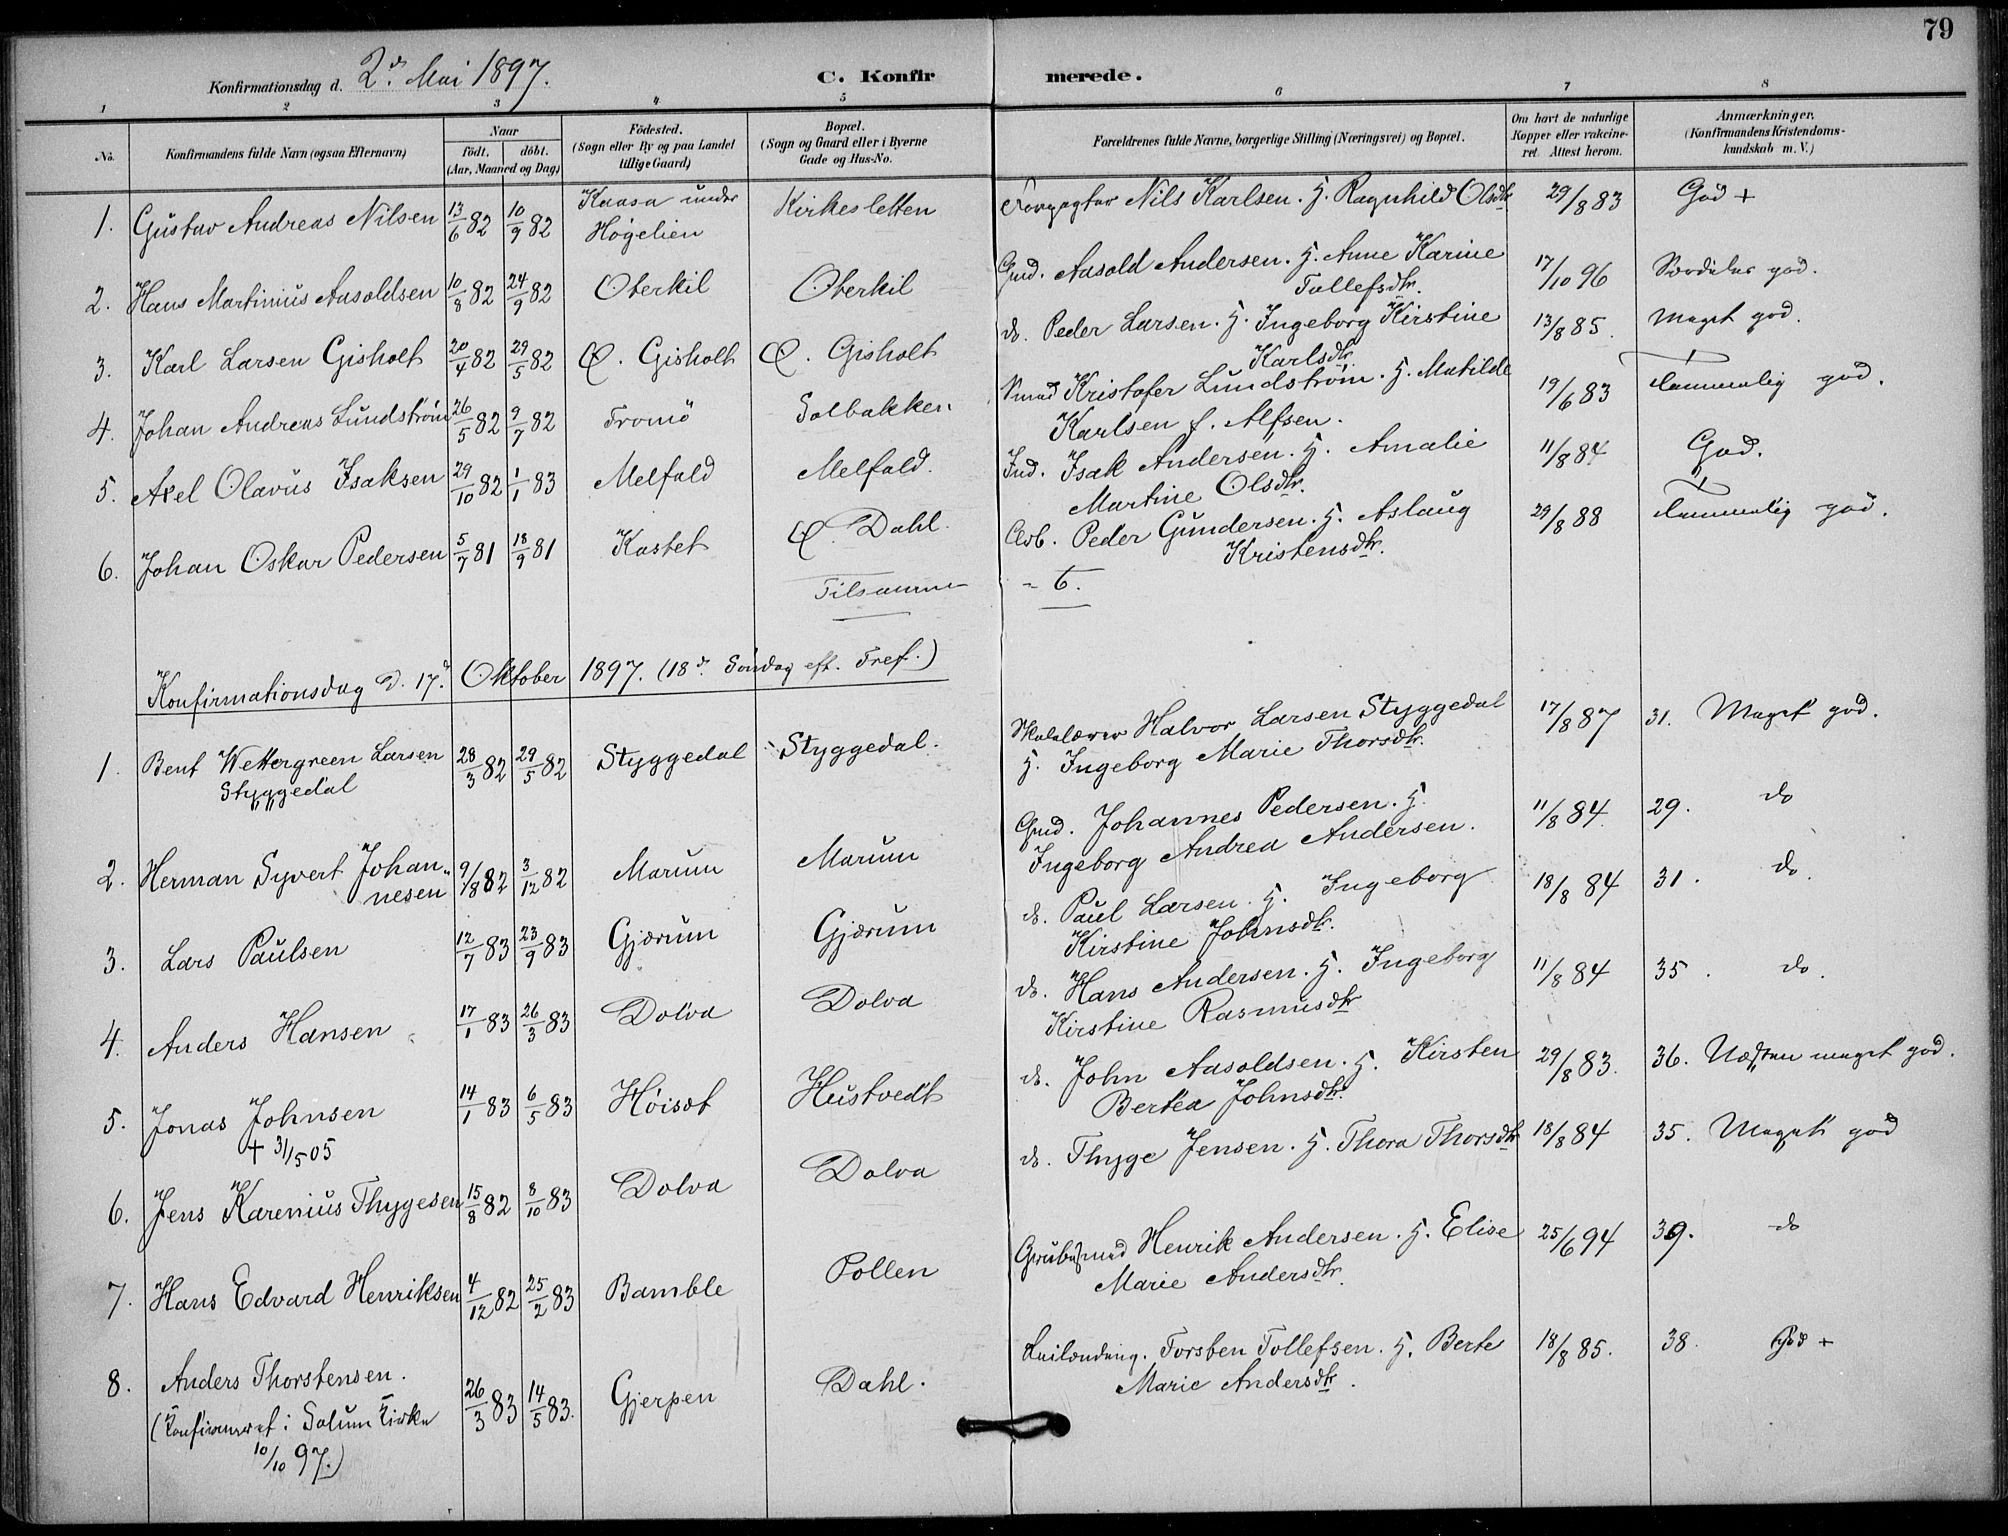 79
Konfirmationsdag d. 2d Mai 1897. C. Konfirmerede.
1 2 3 4 5 6 7 8
No. Konfirmandens fulde Navn (ogsaa Efternavn) Naar födt. döbt. (Aar, Maaned og Dag) Födested. (Sogn eller By og paa Landet tillige Gaard) Bopæl. (Sogn og Gaard eller i Byerne Gade og Hus-No. Forældrenes fulde Navne, borgerlige Stilling (Næringsvei) og Bopæl. Om havt de naturlige Kopper eller vakcineret. Attest herom. Anmærkninger. (Konfirmandens Kristendomskundskab m. V.)
1. Gustav Andreas Nilsen 13/6 82 10/9 82 Kaasa under Høgelien Kirkesletten Forpagter Nils Karlsen. H. Ragnhild Olsdtr. 29/8 83 God +
2. Hans Martinius Aasoldsen 10/8 82 24/9 82 Oterkil Oterkil Gmd. Aasold Andersen. H. Anne Karine Tollefsdtr. 17/10 96 Særdeles god.
3. Karl Larsen Gisholt 20/4 82 29/5 82 Ø. Gisholt Ø. Gisholt do. Peder Larsen. H. Ingeborg Kirstine Karlsdtr. 13/8 85. Meget god.
4. Johan Andreas Lundstrøm 26/5 82 9/7 82 Tromö Solbakken Smed Kristofer Lundstrøm. H. Matilde Karlsen f. Alfsen. 19/6 83 Temmelig god.
5. Axel Olavus Isaksen 29/10 82 1/1 83 Melfald Melfald. Ind. Isak Andersen. H. Amalie Martine Olsdtr. 11/8 84 God.
6. Johan Oskar Pedersen 5/7 81 18/9 81 Kastet Ø. Dahl. Peder Gundersen. H. Aslaug Kristensdtr. 29/8 88 Temmelig god.
Tilsammen - 6.
Konfirmationsdag d. 17d Oktober 1897. (18d. Söndag eft. Tref.)
1. Bent Wettergreen Larsen Styggedal 28/3 82 29/5 82 Styggedal Styggedal. Skolelærer Halvor Larsen Styggedal H. Ingeborg Marie Thorsdtr. 17/8 87 31. Meget god.
2. Herman Syvert Johannesen 9/8 82 3/12 82 Marum Marum Gmd. Johannes Pedersen. H. Ingeborg Andrea Andersen. 11/8 84. 29. do
3. Lars Paulsen 12/7 83 23/9 83 Gjærum Gjærum do. Paul Larsen. H. Ingeborg Kirstine Johnsdtr. 18/8 84 31. do.
4. Anders Hansen 17/1 83 26/3 83 Dolva Dolva do. Hans Andersen. H. Ingeborg Kirstine Rasmusdtr. 11/8 84 35. do.
5. Jonas Johnsen + 31/5 05 14/1 83 6/5 83 Høisæt Hustvedt do. John Aasoldsen. H. Kirsten Bertea Johnsdtr. 29/8 83. 36. Næsten meget god.
6. Jens Karenius Thygesen 15/8 82 8/10 83 Dolva Dolva do. Thyge Jensen. H. Thora Thorsdtr 18/8 84 35. Meget god
7. Hans Edvard Henriksen 4/12 82 25/2 83 Bamble Pollen Grubesmed Henrik Andersen. H. Elise Marie Andersdtr. 25/6 94 39. do
8. Anders Thorstensen. (Konfirmeret i Solum Kirke 10/10 97.) 26/3 83 14/5 83. Gjerpen Dahl. Leilænding. Torsben Tollefsen. H. Berte Marie Andersdtr. 18/8 85. 38. God +